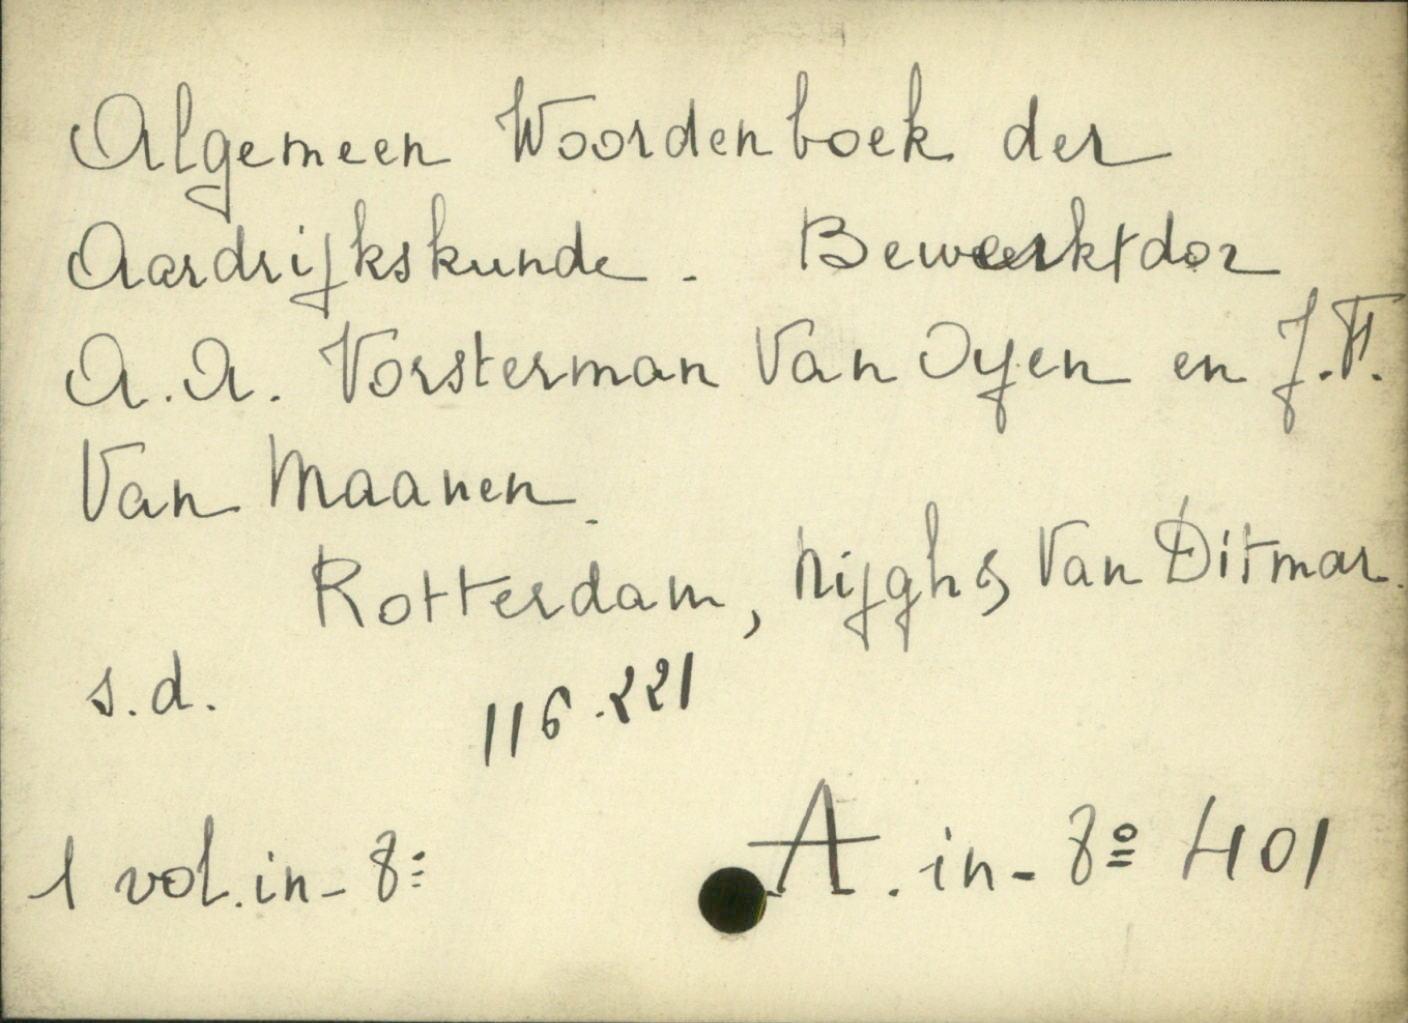 Algemeen Woordenboek der
Aardrijkskunde. Bewerkt dor
A.A. Vorsterman Van Oyen en J.F.
Van Maanen.
Rotterdam, Nijgh & Van Ditmar.
s.d.
116.221
1 vol. in-8º
A. in-8º 401